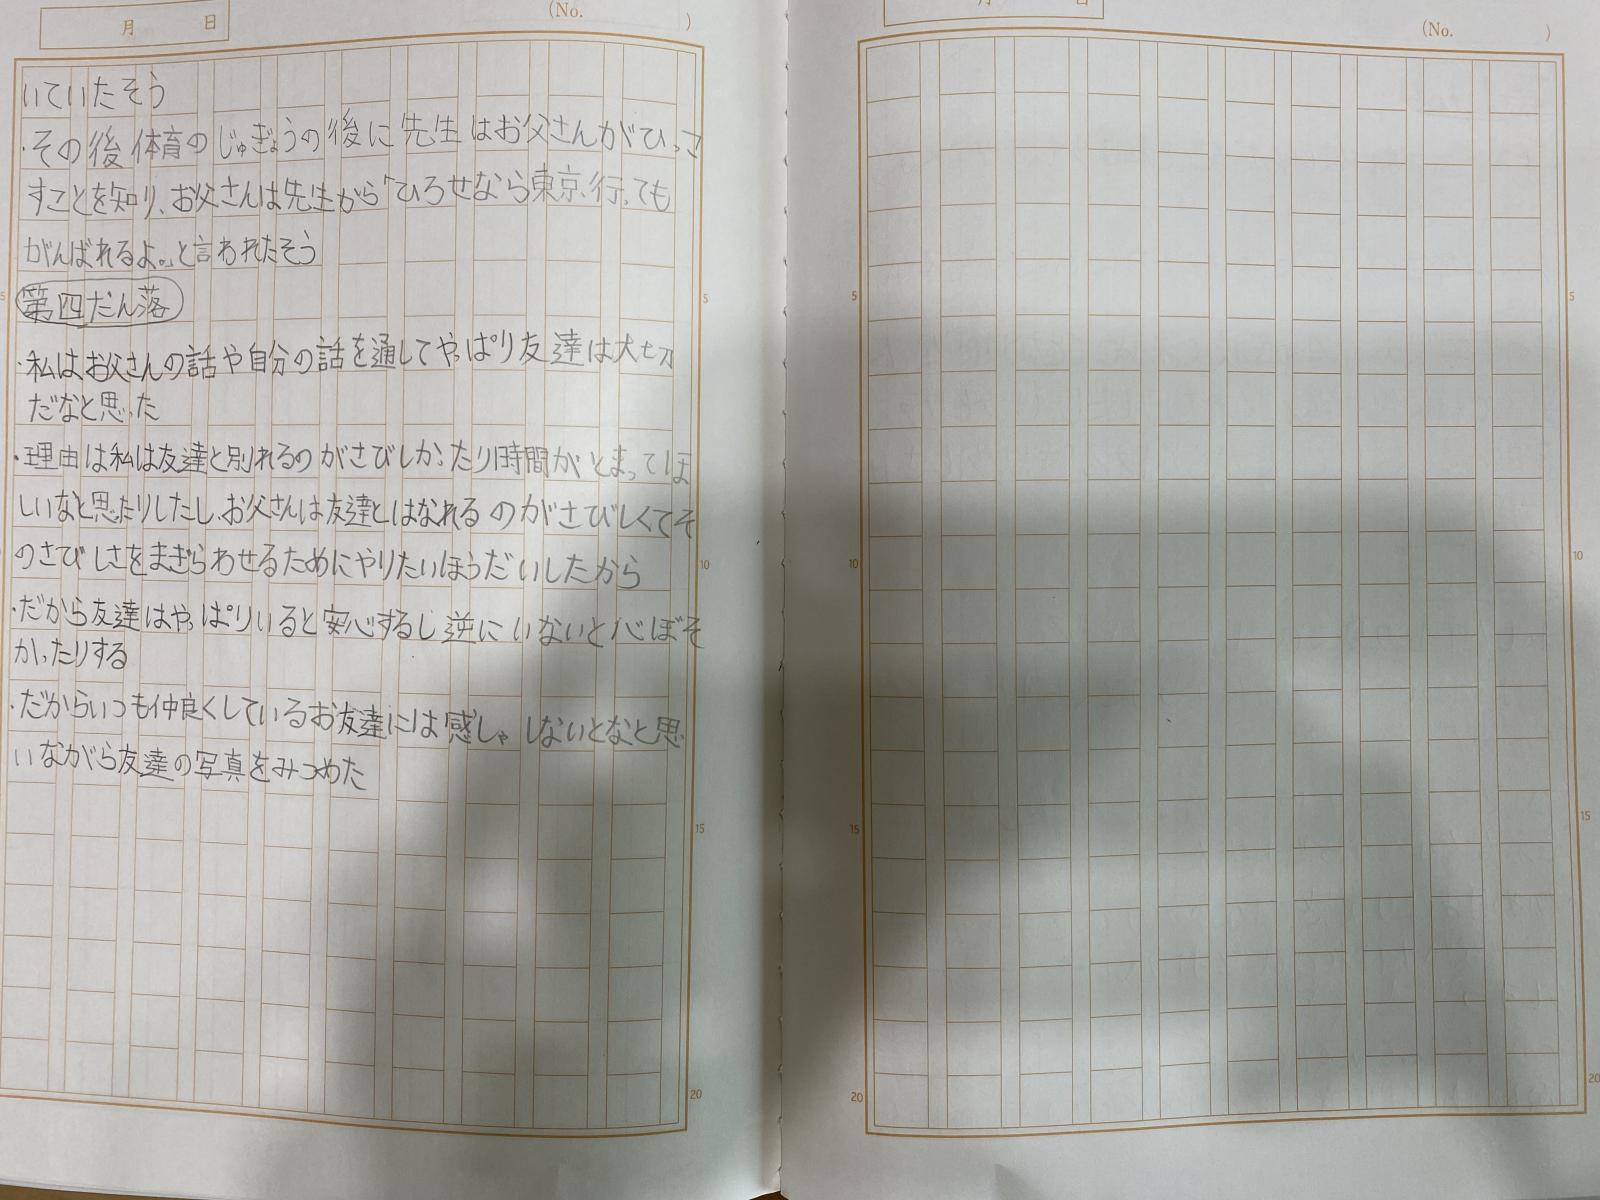 月 日
(No. )
いていたそう
・その後体育のじゅぎょうの後に先生はお父さんがひっこ
すことを知り、お父さんは先生から「ひろせなら東京行っても
がんばれるよ。」と言われたそう
第四だん落
・私はお父さんの話や自分の話を通してやっぱり友達は大切
だなと思った
・理由は私は友達と別れるのがさびしかったり時間がとまってほ
しいなと思たりしたし、お父さんは友達とはなれるのがさびしくてそ
のさびしさをまぎらわせるためにやりたいほうだいしたから
・だから友達はやっぱりいると安心するし逆にいないと心ぼそ
かったりする
・だからいつも仲良くしているお友達には感しゃしないとなと思
いながら友達の写真をみつめた
5
10
15
20
月 日
(No. )
5
10
15
20
5
10
15
20